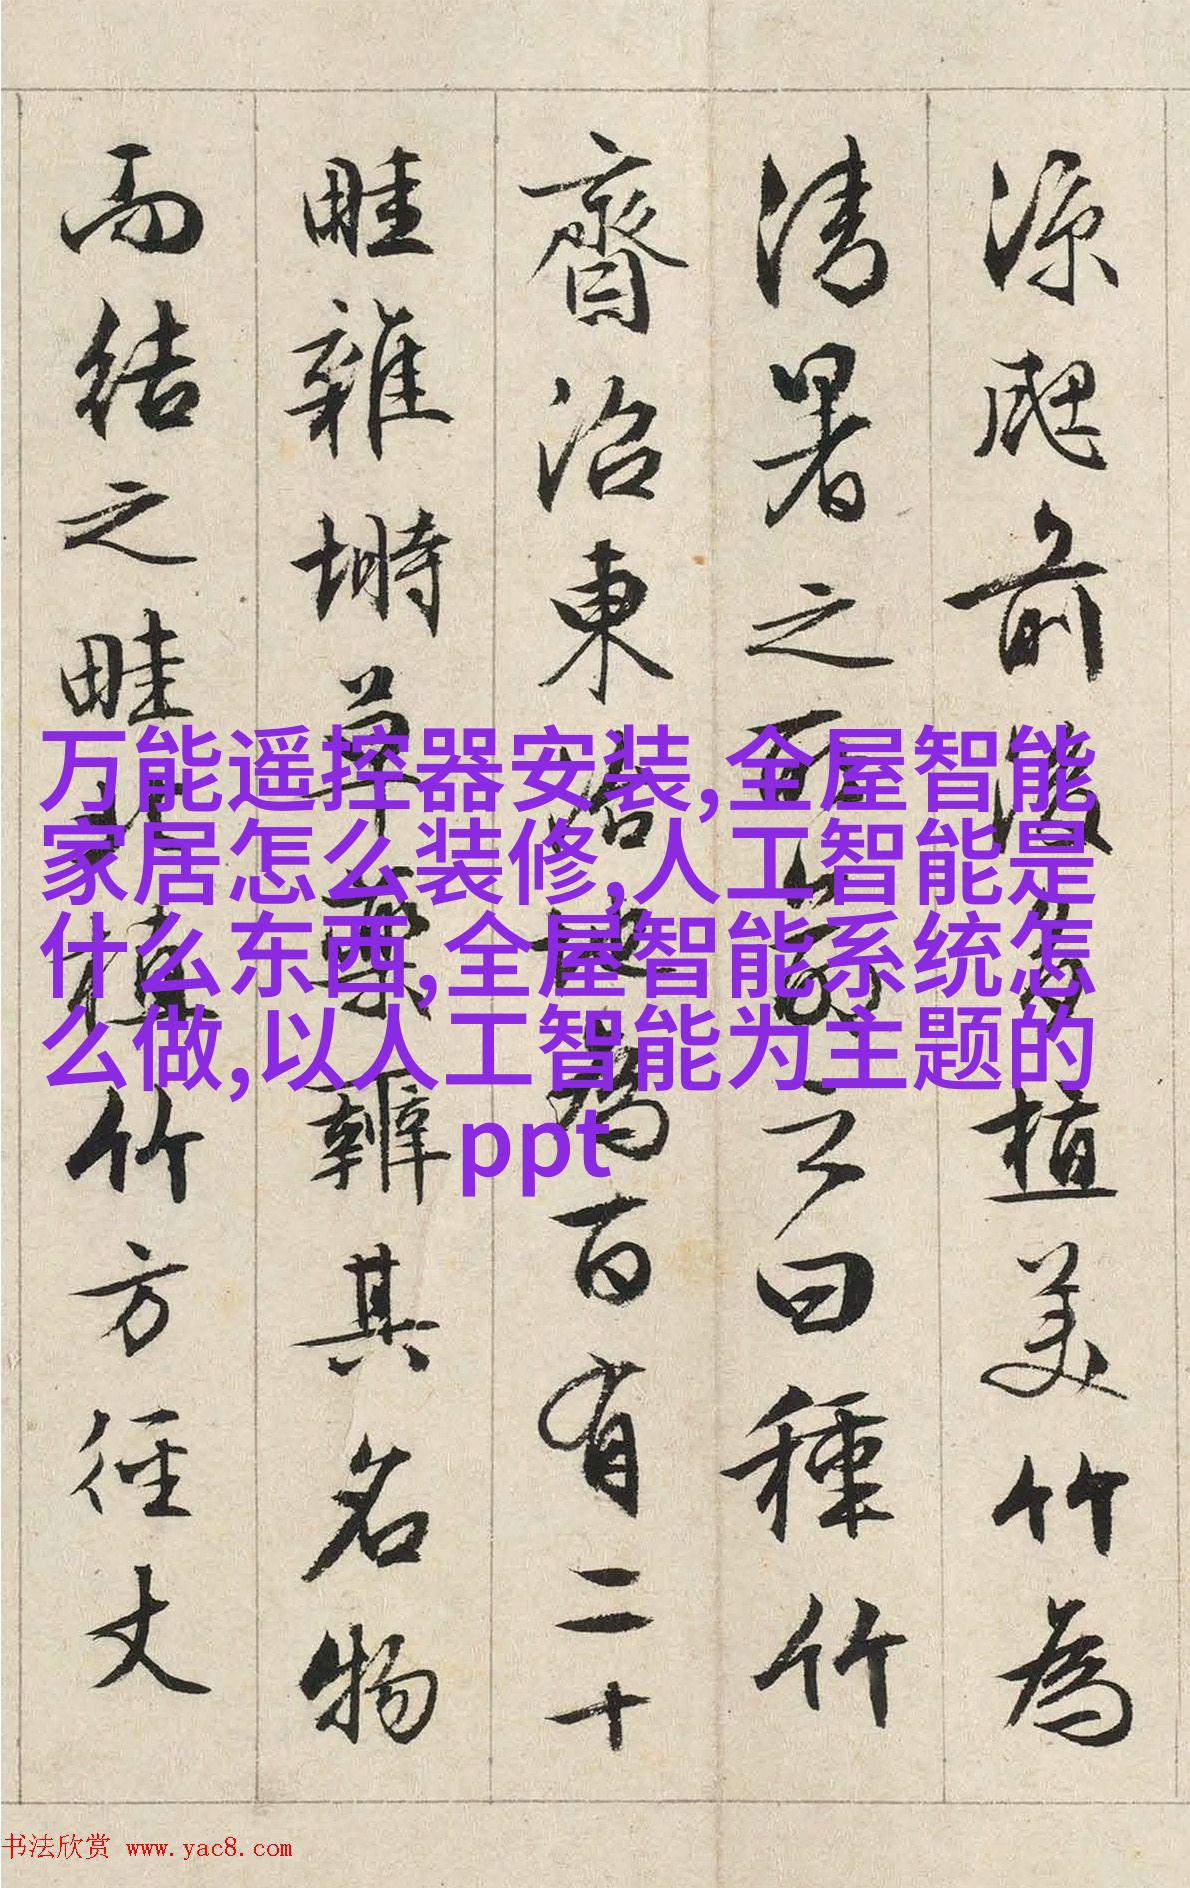 涼颸前後多植美竹為
清暑之所命之曰種竹
齋沼東治地為百有二十
畦雜蒔草藥辨其名物
而結之畦北植竹方徑丈
万能遥控器安装,全屋智能
家居怎么装修,人工智能是
什么东西,全屋智能系统怎
么做,以人工智能为主题的
ppt
书法欣赏 www.yac8.com